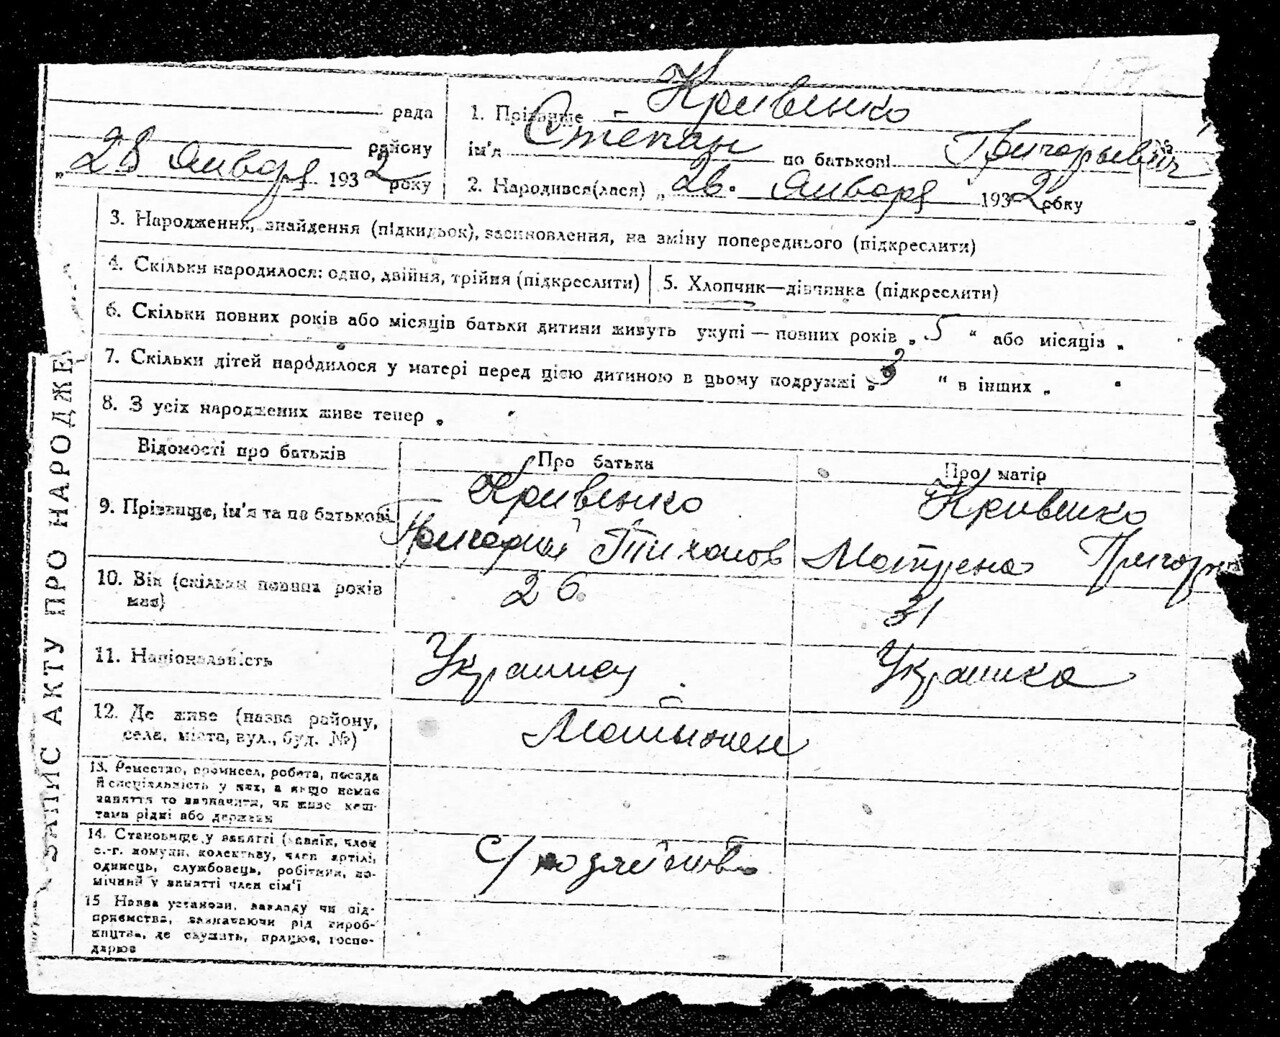 Кривенко
рада
1. Прізвище
району
Степан
ім'я по батькові Григорьевич
„28 Января 1932 року
2. Народився(лася) „26. Января 1932 року
3. Народження, знайдення (підкидьок), засиновлення, на зміну попереднього (підкреслити)
4. Скільки народилося: одно, двійня, трійня (підкреслити)
5. Хлопчик—дівчинка (підкреслити)
6. Скільки повних років або місяців батьки дитини живуть укупі — повних років „ 5 “ або місяців „
7. Скільки дітей народилося у матері перед цією дитиною в цьому подружжі „3 “ в інших „ “
8. З усіх народжених живе тепер „ “
ЗАПИС АКТУ ПРО НАРОДЖЕ
Відомості про батьків
Про батька
Про матір
9. Прізвище, ім'я та по батькові
Кривенко
Григорий Тихонов
Кривенко
Матрена Григорь
10. Вік (скільки повних років
має)
26
31
11. Національність
Украинец
Украинка
12. Де живе (назва району,
села, міста, вул., буд. №)
13. Ремество, промисел, робота, посада
й спеціяльність у них, а якщо немає
заняття то зазначити, чиїм живе кош-
тами рідні або держави
14. Становище у занятті (хазяїн, член
с.-г. комуни, колективу, член артілі,
одинець, службовець, робітник, по-
мічний у занятті член сім'ї
15 Назва установи, закладу чи під-
приємства, зазначаючи рід вироб-
ництва, де служить, працює, госпо-
дарює